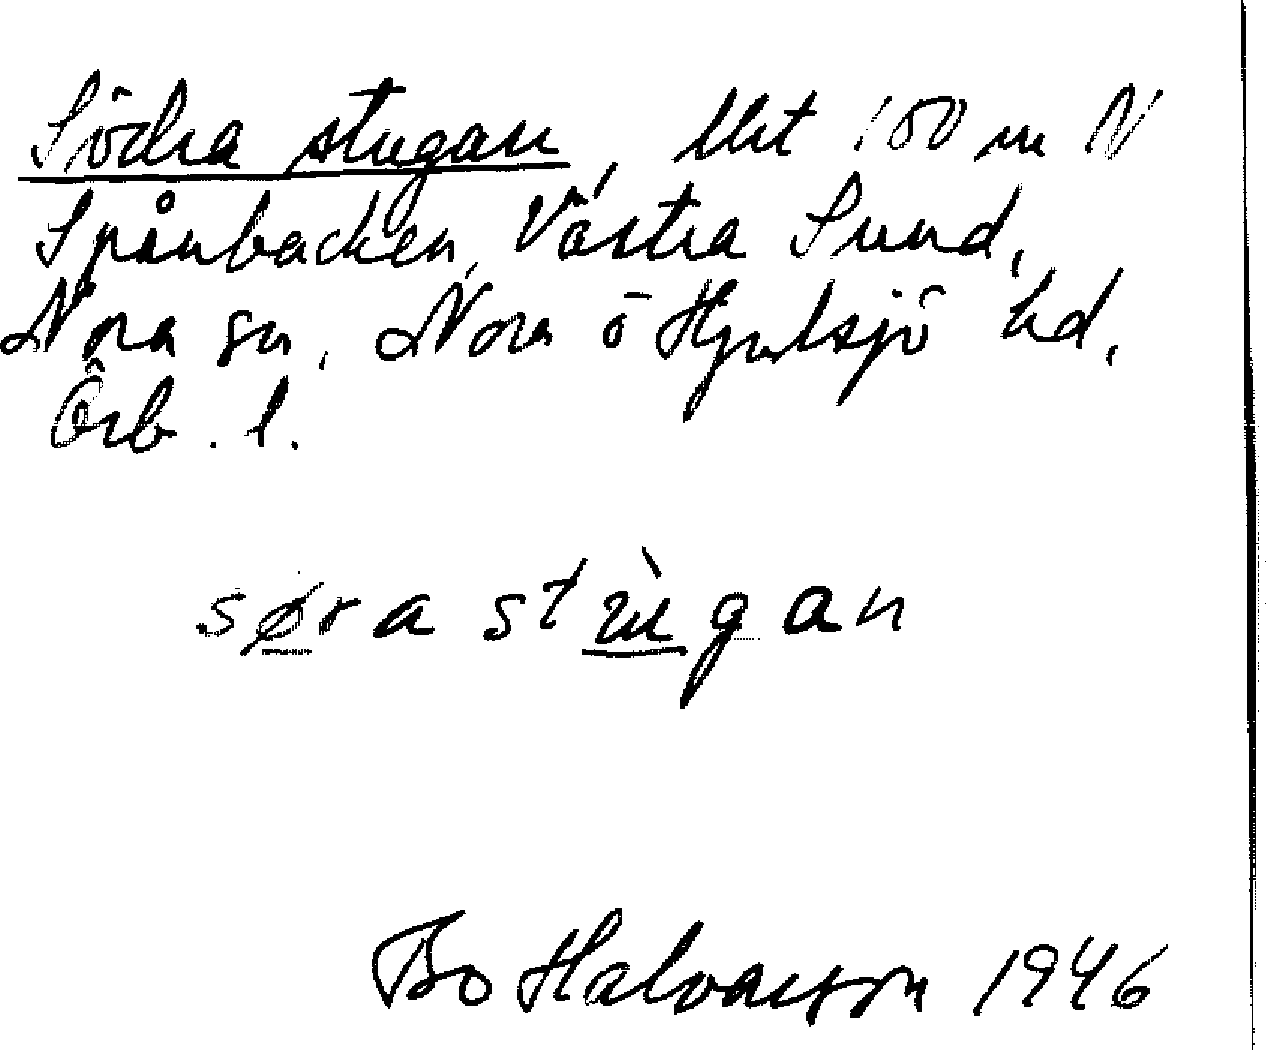 Södra stugan, lht 100 m N
Spånbacken, Västra Sund,
Nora sn, Nora o Hjulsjö hd,
Örb. l.
søra stùgan
Bo Halvarsson 1946